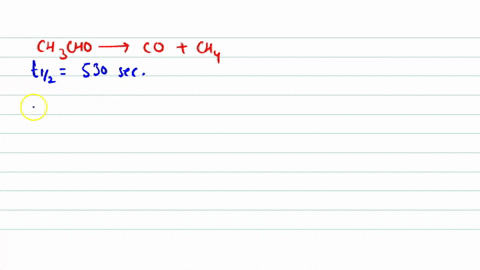 CH₃CHO ⟶ CO + CH₄
t₁/₂ = 530 sec.